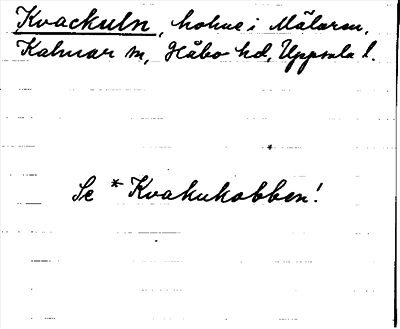 Kvackuln, holme i Mälaren,
Kalmar sn, Håbo hd, Uppsala l.
Se *Kvakukobben!